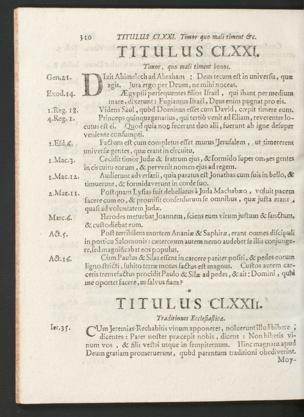 320 TITULUS CLXXI. Timor quo mali timent &c.
TITULUS CLXXI.
Timor, quo mali timent bonos.
Gen.21. Dixit Abimelech ad Abraham; Deus tecum est in universis, quæ
agis, Jura ergo per Deum, ne mihi noceas.
Exod.14. Ægyptii persequentes filios Israel, qui ibant per medium
mare, dixerunt: Fugiamus Israel, Deus enim pugnat pro eis.
1.Reg.18. Videns Saul, quod Dominus esset cum David, cœpit timere eum.
4.Reg.1. Princeps quinquagenarius, qui tertiò venit ad Eliam, reverenter lo-
cutus est ei. Quod quia non fecerunt duo alii, fuerunt ab igne desuper
veniente consumpti.
2.Esd.6. Factum est cum completus esset murus Jerusalem, ut timerent
universæ gentes, quæ erant in circuitu.
1.Mac.3. Cecidit timor Judæ & fratrum ejus, & formido super omnes gentes
in circuitu eorum, & pervenit nomen ejus ad regem.
1.Mac.12. Audierunt adversarii, quia paratus est Jonathas cum suis in bello, &
timuerunt, & formidaverunt in corde suo.
2.Mac.11. Postquam Lysias fuit debellatus à Juda Machabæo, voluit pacem
facere cum eo, & promisit consensurum se omnibus, quæ justa erant,
quasi ad voluntatem Judæ.
Marc.6. Herodes metuebat Joannem, sciens eum virum justum & sanctum,
& custodiebat eum.
Act.5. Post terribilem mortem Ananiæ & Saphiræ, erant omnes discipuli
in porticu Salomonis: cæterorum autem nemo audebat se illis conjunge-
re, sed magnificabat eos populus.
Act.16. Cum Paulus & Silas essent in carcere pariter positi, & pedes eorum
ligno stricti, subito terræ motus factus est magnus. Custos autem car-
ceris tremefactus procidit Paulo & Silæ ad pedes, & ait: Domini, quid
me oportet facere, ut salvus fiam?
TITULUS CLXXII.
Traditiones Ecclesiasticæ.
Jer.35. CUm Jeremias Rechabitis vinum apponeret, noluerunt illud bibere;
dicentes: Pater noster præcepit nobis, dicens: Non bibetis vi-
num vos, & filii vestri usque in sempiternum. Hinc magnam apud
Deum gratiam promeruerunt, quòd parentum traditioni obedirent.
Moy-